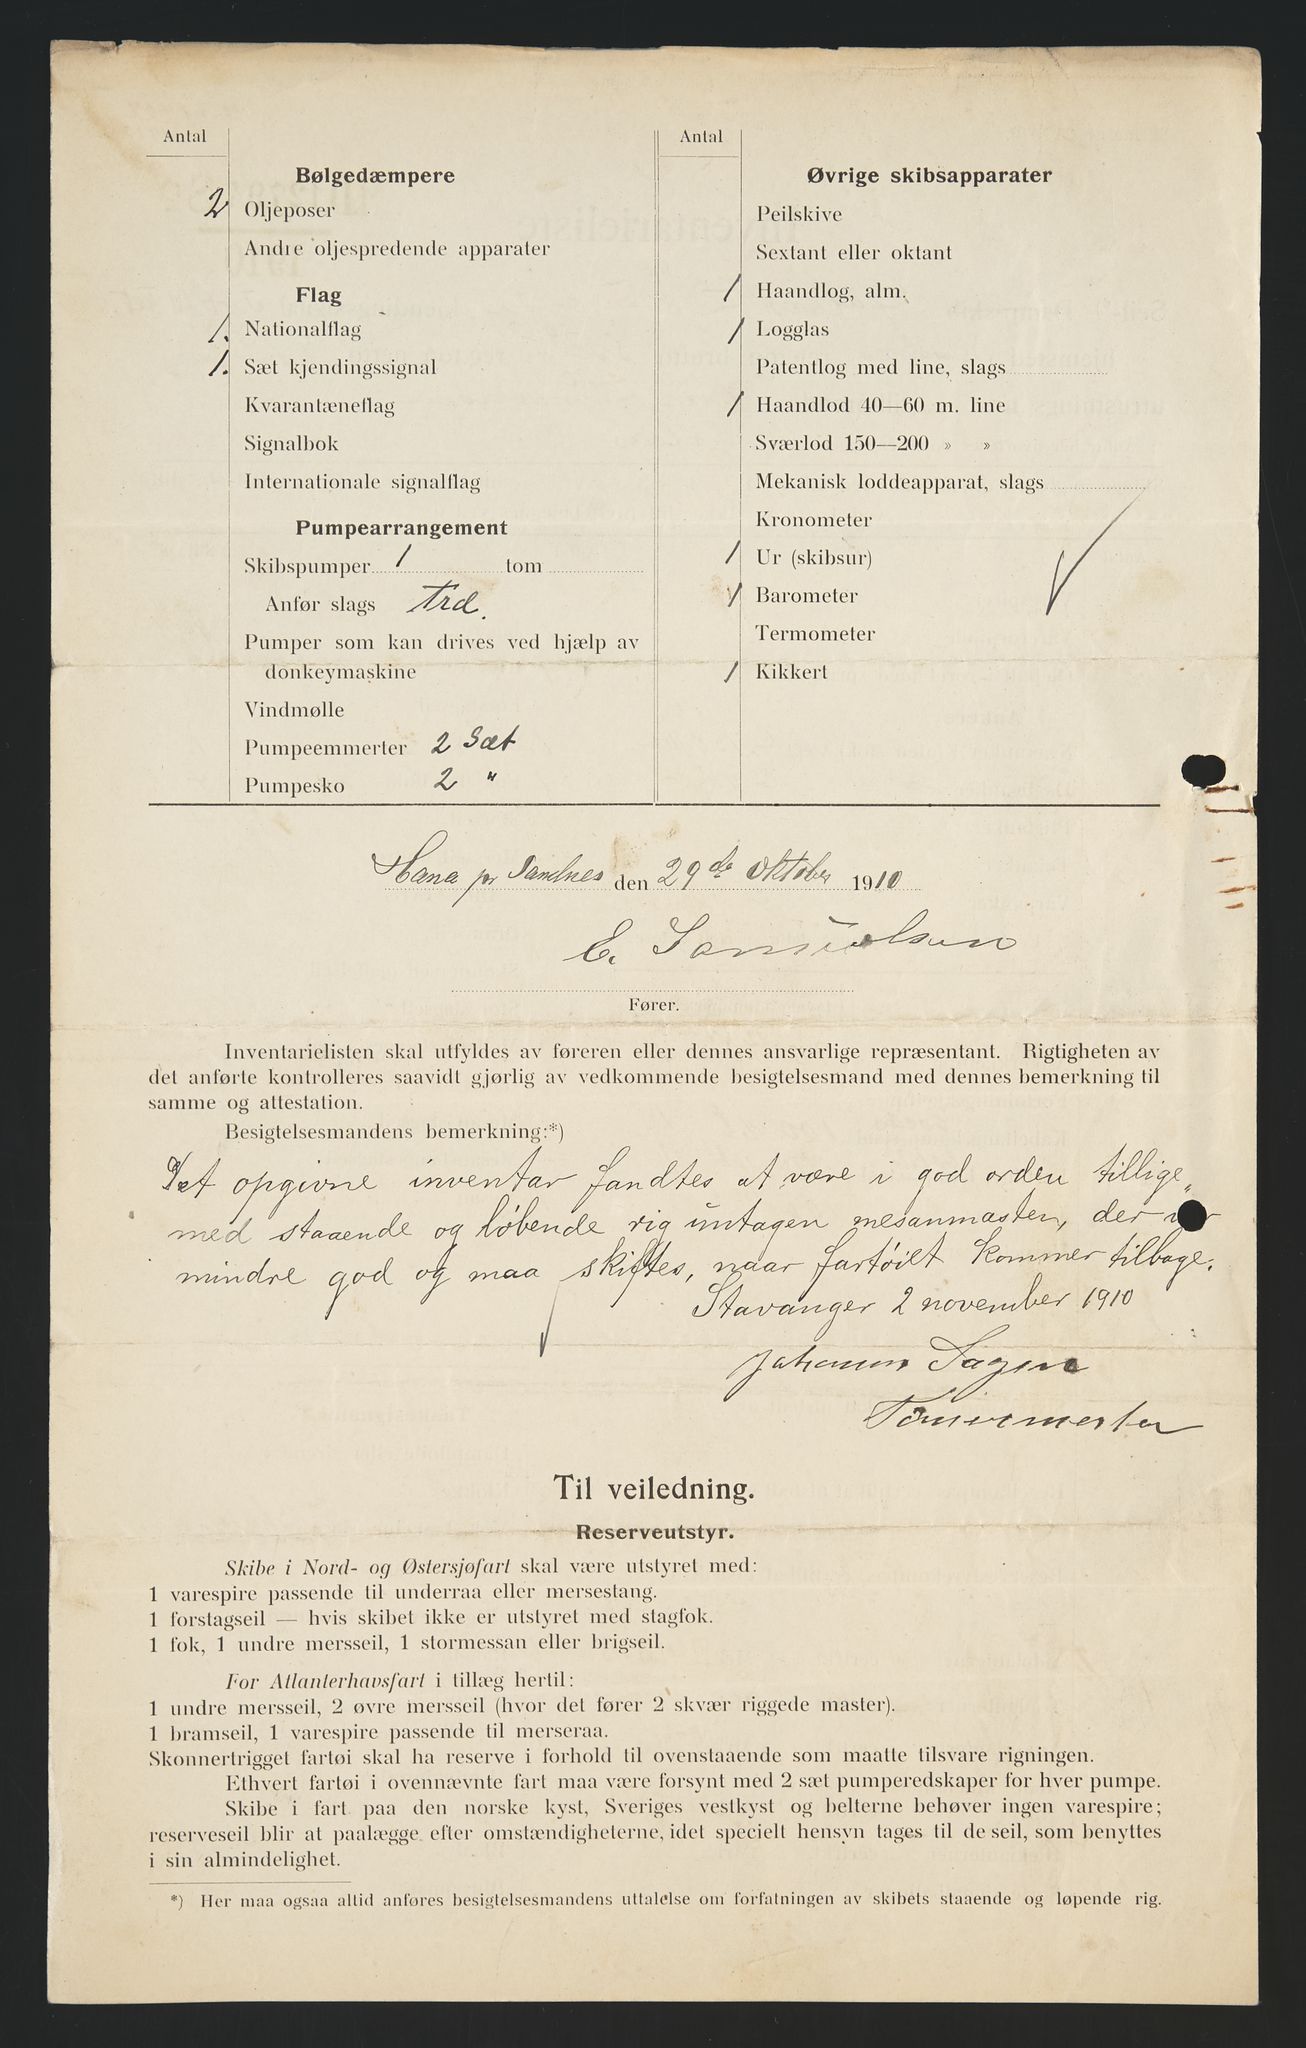 Antal
Bølgedæmpere
2 Oljeposer
Andre oljespredende apparater
Flag
1. Nationalflag
1. Sæt kjendingssignal
Kvarantæneflag
Signalbok
Internationale signalflag
Pumpearrangement
Skibspumper 1 tom
Anfør slags Træ.
Pumper som kan drives ved hjælp av
donkeymaskine
Vindmølle
Pumpeemmerter 2 Sæt
Pumpesko 2 "
Antal
Øvrige skibsapparater
Peilskive
Sextant eller oktant
1 Haandlog, alm.
1 Logglas
Patentlog med line, slags
1 Haandlod 40—60 m. line
Sværlod 150—200 » »
Mekanisk loddeapparat, slags
Kronometer
1 Ur (skibsur)
1 Barometer
Termometer
1 Kikkert
Hana pr Sandnes den 29de Oktober 1910
E. Samuelsen
Fører.
Inventarielisten skal utfyldes av føreren eller dennes ansvarlige repræsentant. Rigtigheten av
det anførte kontrolleres saavidt gjørlig av vedkommende besigtelsesmand med dennes bemerkning til
samme og attestation.
Besigtelsesmandens bemerkning:*)
Det opgivne inventar fandtes at være i god orden tillige„
med staaende og løbende rig untagen mesanmasten, der
mindre god og maa skiftes, naar fartøiet kommer tilbage.
Stavanger 2 november 1910
Johannes Sagen
Tømmermester
Til veiledning.
Reserveutstyr.
Skibe i Nord- og Østersjøfart skal være utstyret med:
1 varespire passende til underraa eller mersestang.
1 forstagseil — hvis skibet ikke er utstyret med stagfok.
1 fok, 1 undre mersseil, 1 stormessan eller brigseil.
For Atlanterhavsfart i tillæg hertil:
1 undre mersseil, 2 øvre mersseil (hvor det fører 2 skvær riggede master).
1 bramseil, 1 varespire passende til merseraa.
Skonnertrigget fartøi skal ha reserve i forhold til ovenstaaende som maatte tilsvare rigningen.
Ethvert fartøi i ovennævnte fart maa være forsynt med 2 sæt pumperedskaper for hver pumpe.
Skibe i fart paa den norske kyst, Sveriges vestkyst og belterne behøver ingen varespire;
reserveseil blir at paalægge efter omstændigheterne, idet specielt hensyn tages til de seil, som benyttes
i sin almindelighet.
*) Her maa ogsaa altid anføres besigtelsesmandens uttalelse om forfatningen av skibets staaende og løpende rig.